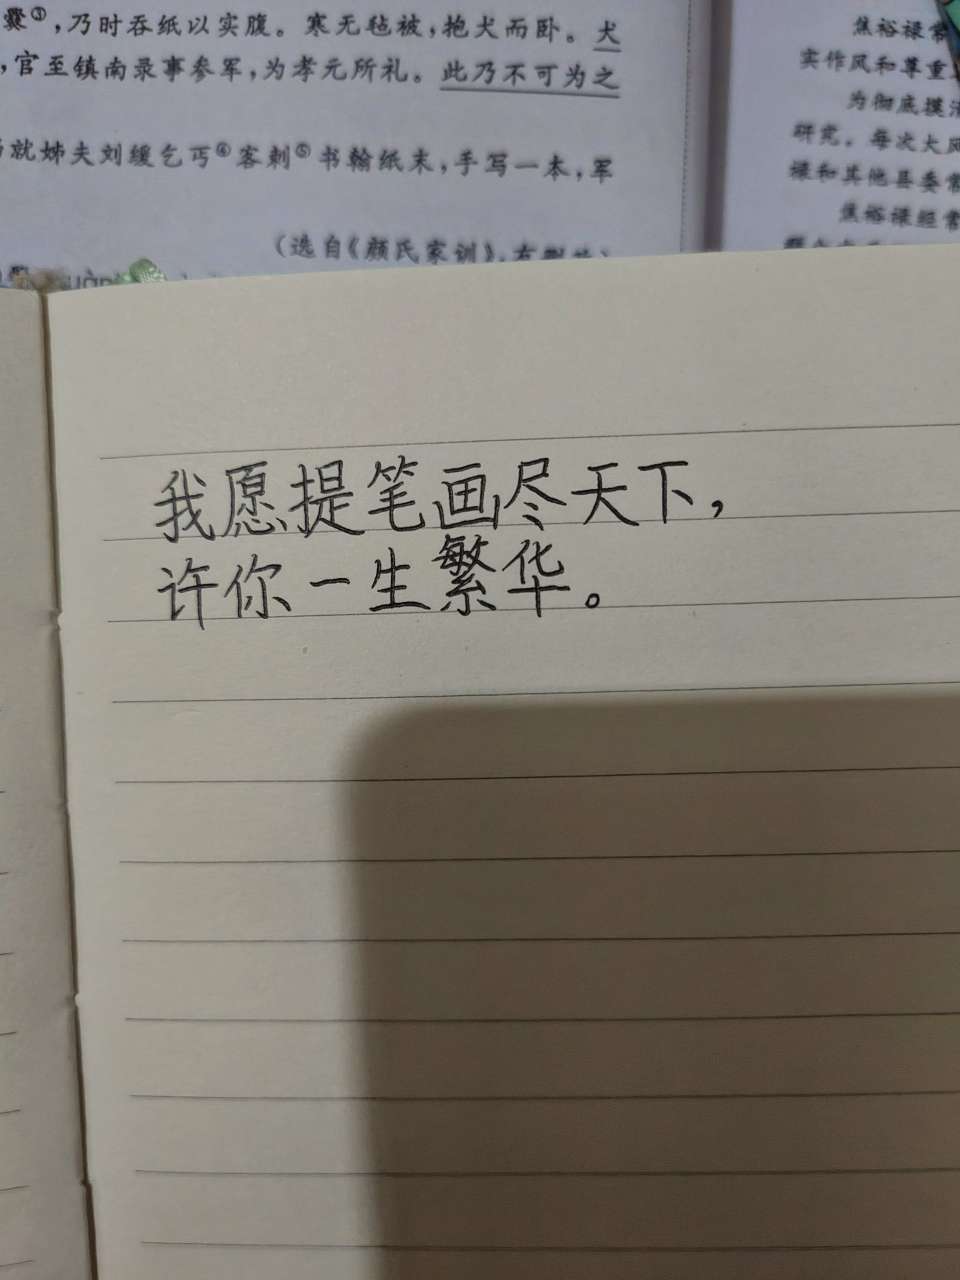 爨③,乃时吞纸以实腹。寒无毡被,抱犬而卧。犬
,官至镇南录事参军,为孝元所礼。此乃不可为之
就姊夫刘缓乞丐④客刺⑤书翰纸末,手写一本,军
(选自《颜氏家训》,有删
焦裕禄常
实作风和尊重
为彻底摸清
研究。每次大风
禄和其他县委常
焦裕禄经常
我愿提笔画尽天下,
许你一生繁华。